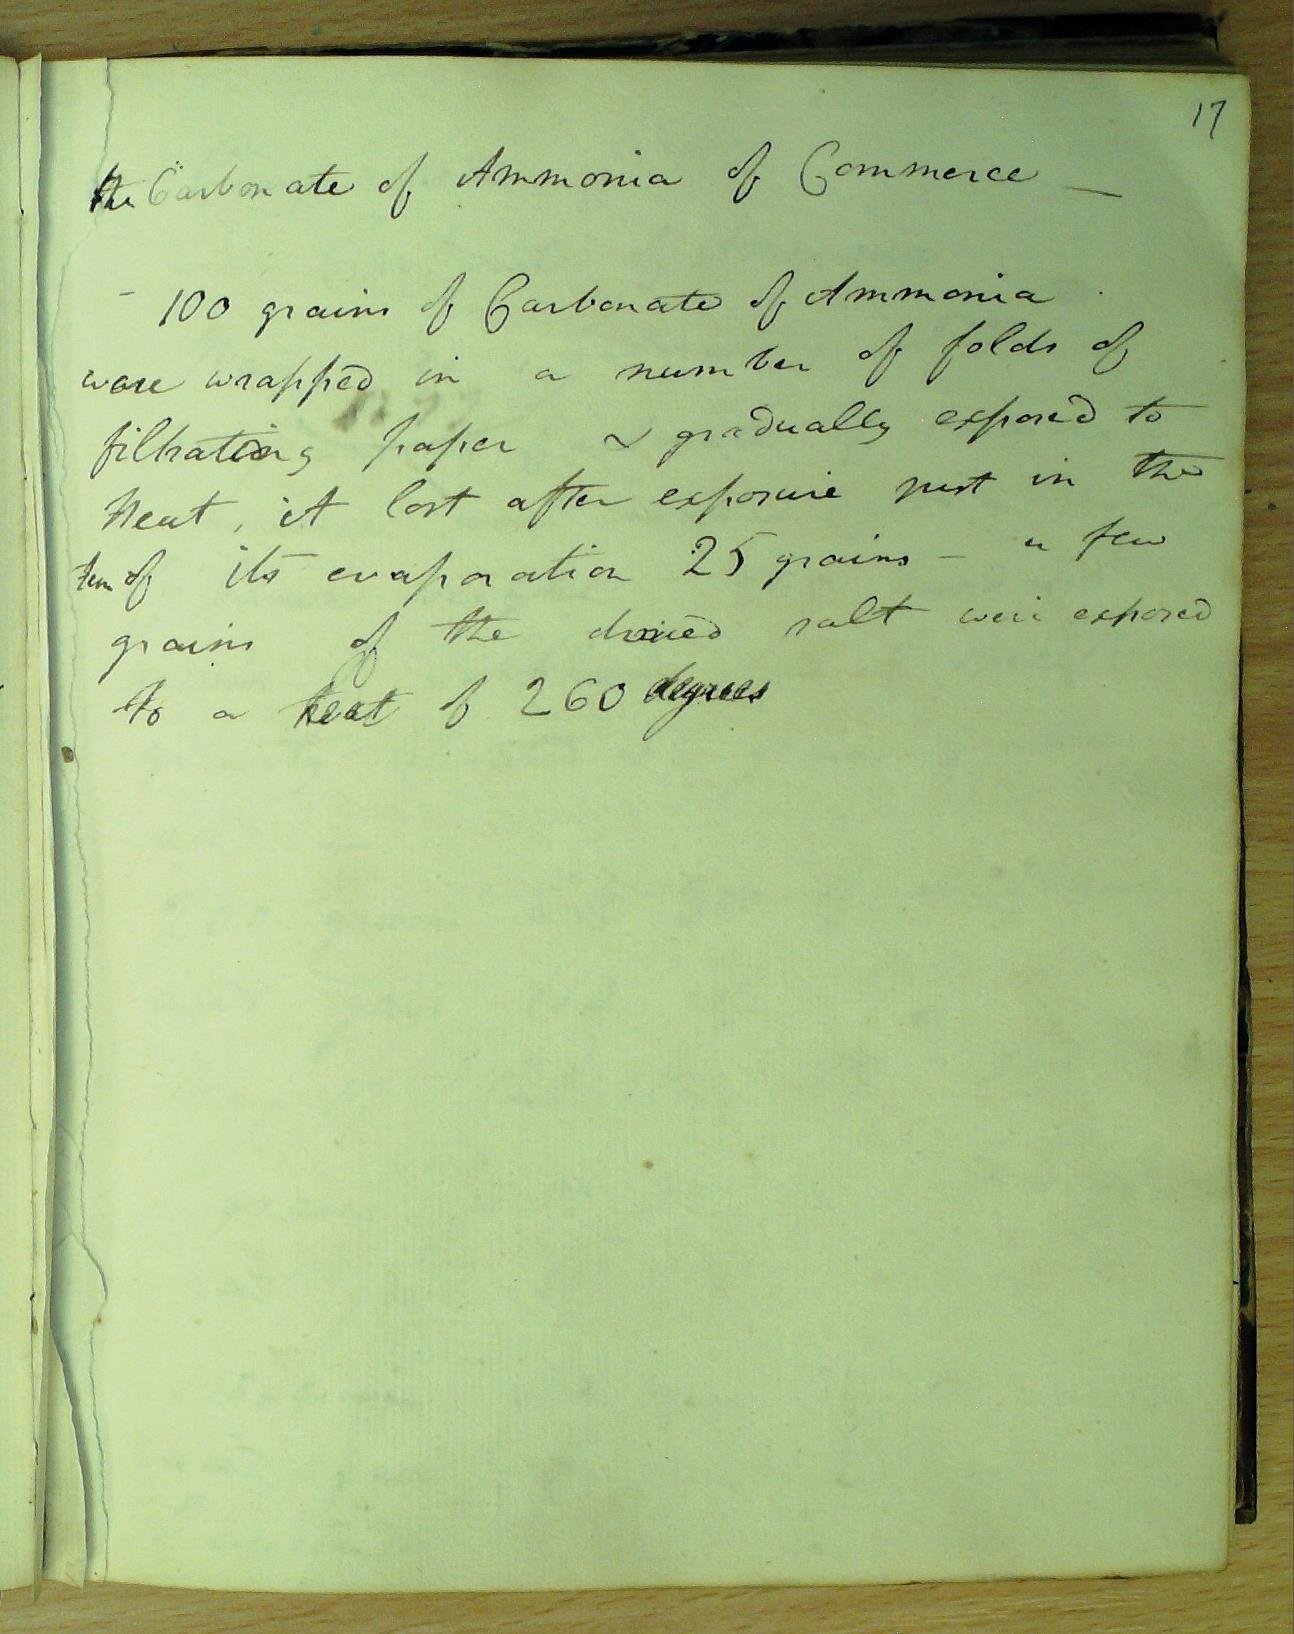 17
the Carbonate of Ammonia of Commerce —
- 100 grains of Carbonate of Ammonia
were wrapped in a number of folds of
filtrating paper & gradually exposed to
Heat, it lost after exposure just in the
of its evaporation 25 grains – a few
grains of the dried salt were exposed
to a heat of 260 degrees